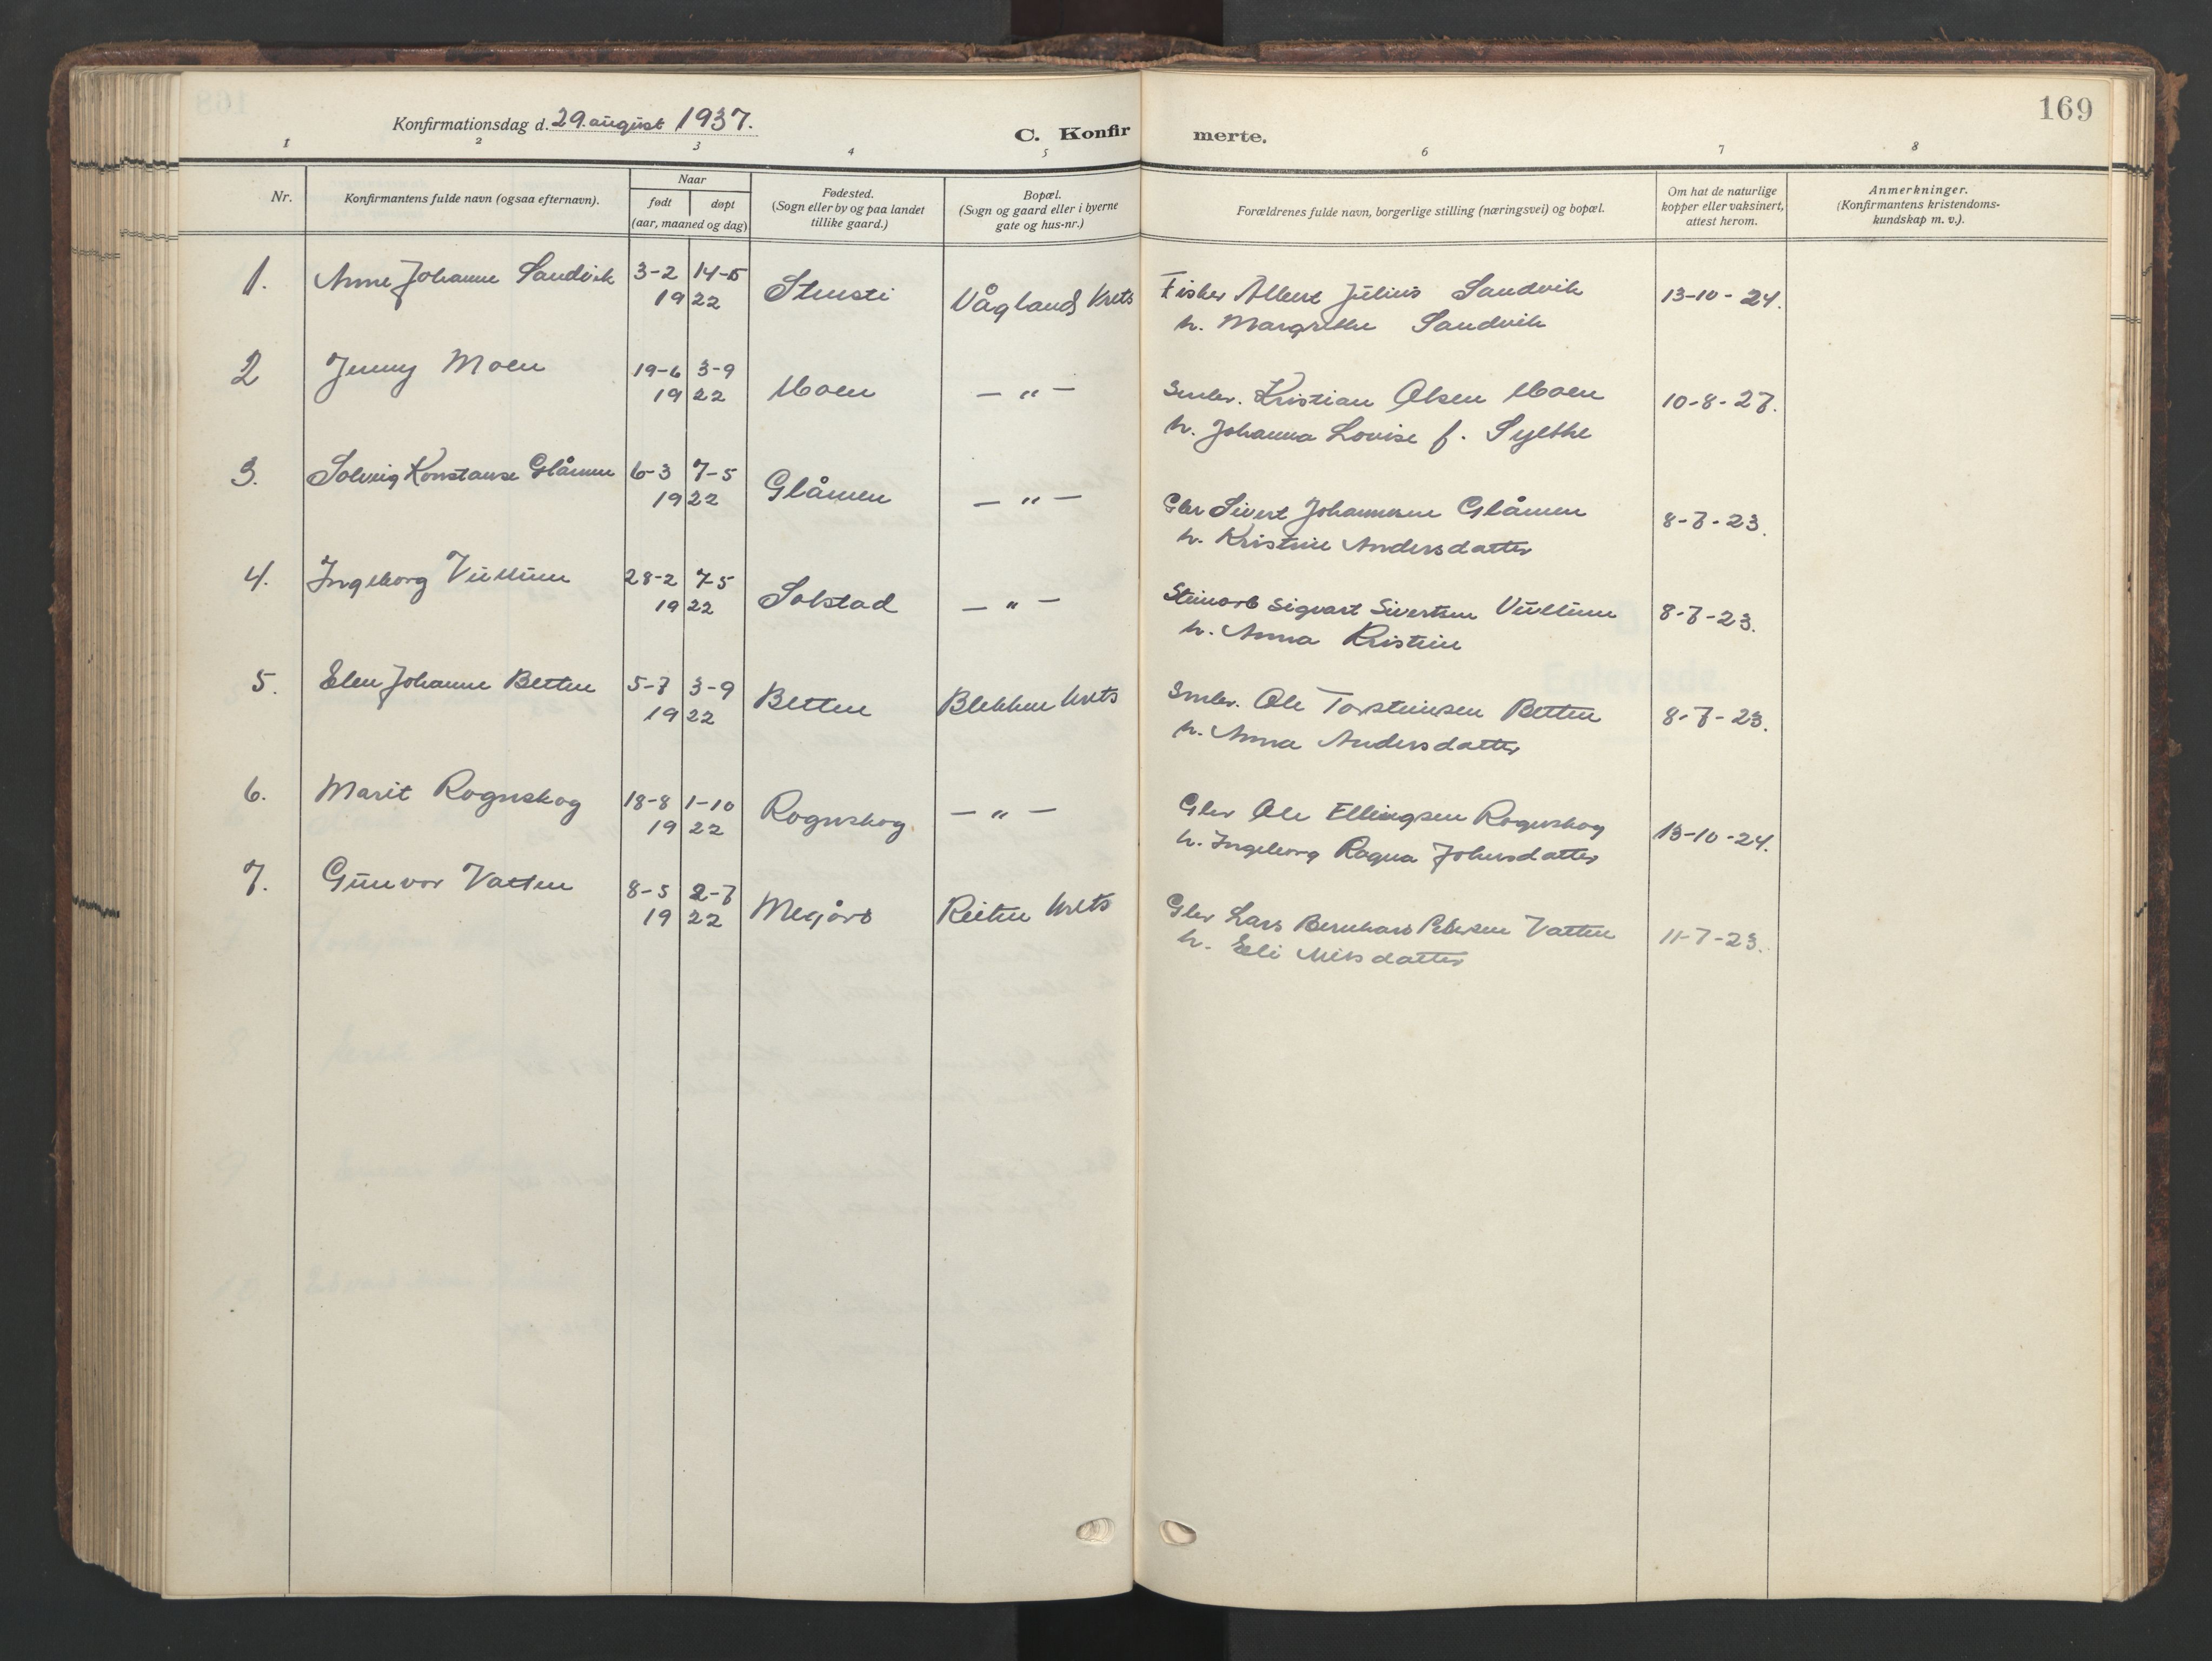 169
Konfirmationsdag d. 29. august 1937.
C. Konfirmerte.
1 2 3 4 5 6 7 8
Nr.
Konfirmantens fulde navn (ogsaa efternavn).
Naar
født døpt
(aar, maaned og dag)
Fødested.
(Sogn eller by og paa landet
tillike gaard.)
Bopæl.
(Sogn og gaard eller i byerne
gate og hus-nr.)
Forældrenes fulde navn, borgerlige stilling (næringsvei) og bopæl.
Om hat de naturlige
kopper eller vaksinert,
attest herom.
Anmerkninger.
(Konfirmantens kristendoms-
kundskap m. v.).
1. Anne Johanne Sandvik 3-2 14-5 Stensti Våglands Krets Fisker Albert Julius Sandvik 13-10-24.
1922 h. Margrethe Sandvik
2 Jenny Moen 19-6 3-9 Moen — " — Smbr. Kristian Olsen Moen 10-8-27.
1922 h. Johanna Lovise f. Sylthe
3. Solveig Konstanse Glåmen 6-3 7-5 Glåmen — " — Gbr Sivert Johannesen Glåmen 8-7-23.
1922 h. Kristine Andersdatter
4. Ingeborg Vullum 28-2 7-5 Solstad — " — Steinarb Sigvart Sivertsen Vullum 8-7-23.
1922 h. Anna Kristine
5. Elen Johanne Betten 5-7 3-9 Betten Blekken krets Smbr. Ole Torsteinsen Betten 8-7-23.
1922 h. Anna Andersdatter
6. Marit Rognskog 18-8 1-10 Rognskog — " — Gbr Ole Ellingsen Rognskog 13-10-24.
1922 h. Ingeborg Ragna Johnsdatter
7. Gunvor Vatten 8-5 2-7 Megård Reiten krets Gbr Lars Bernhard Pedersen Vatten 11-7-23.
1922 h. Eli Nilsdatter